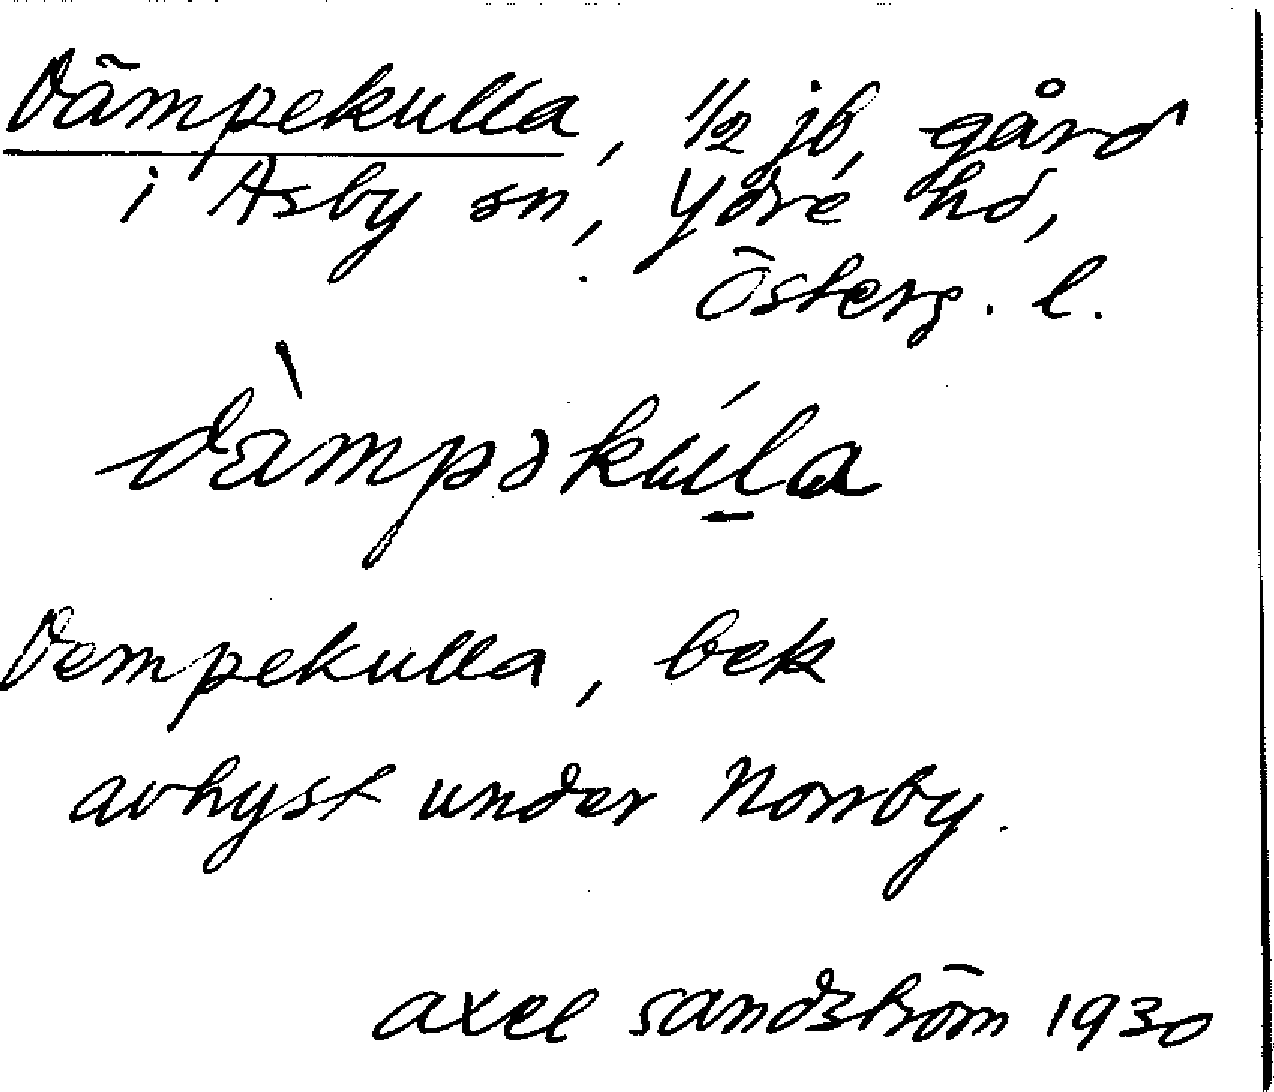 Dämpekulla, 1/2 jb, gård
i Asby sn, Ydre hd,
Österg. l.
dàmpəkúla
Dempekulla, bek
avhyst under Norrby.
axel sandström 1930